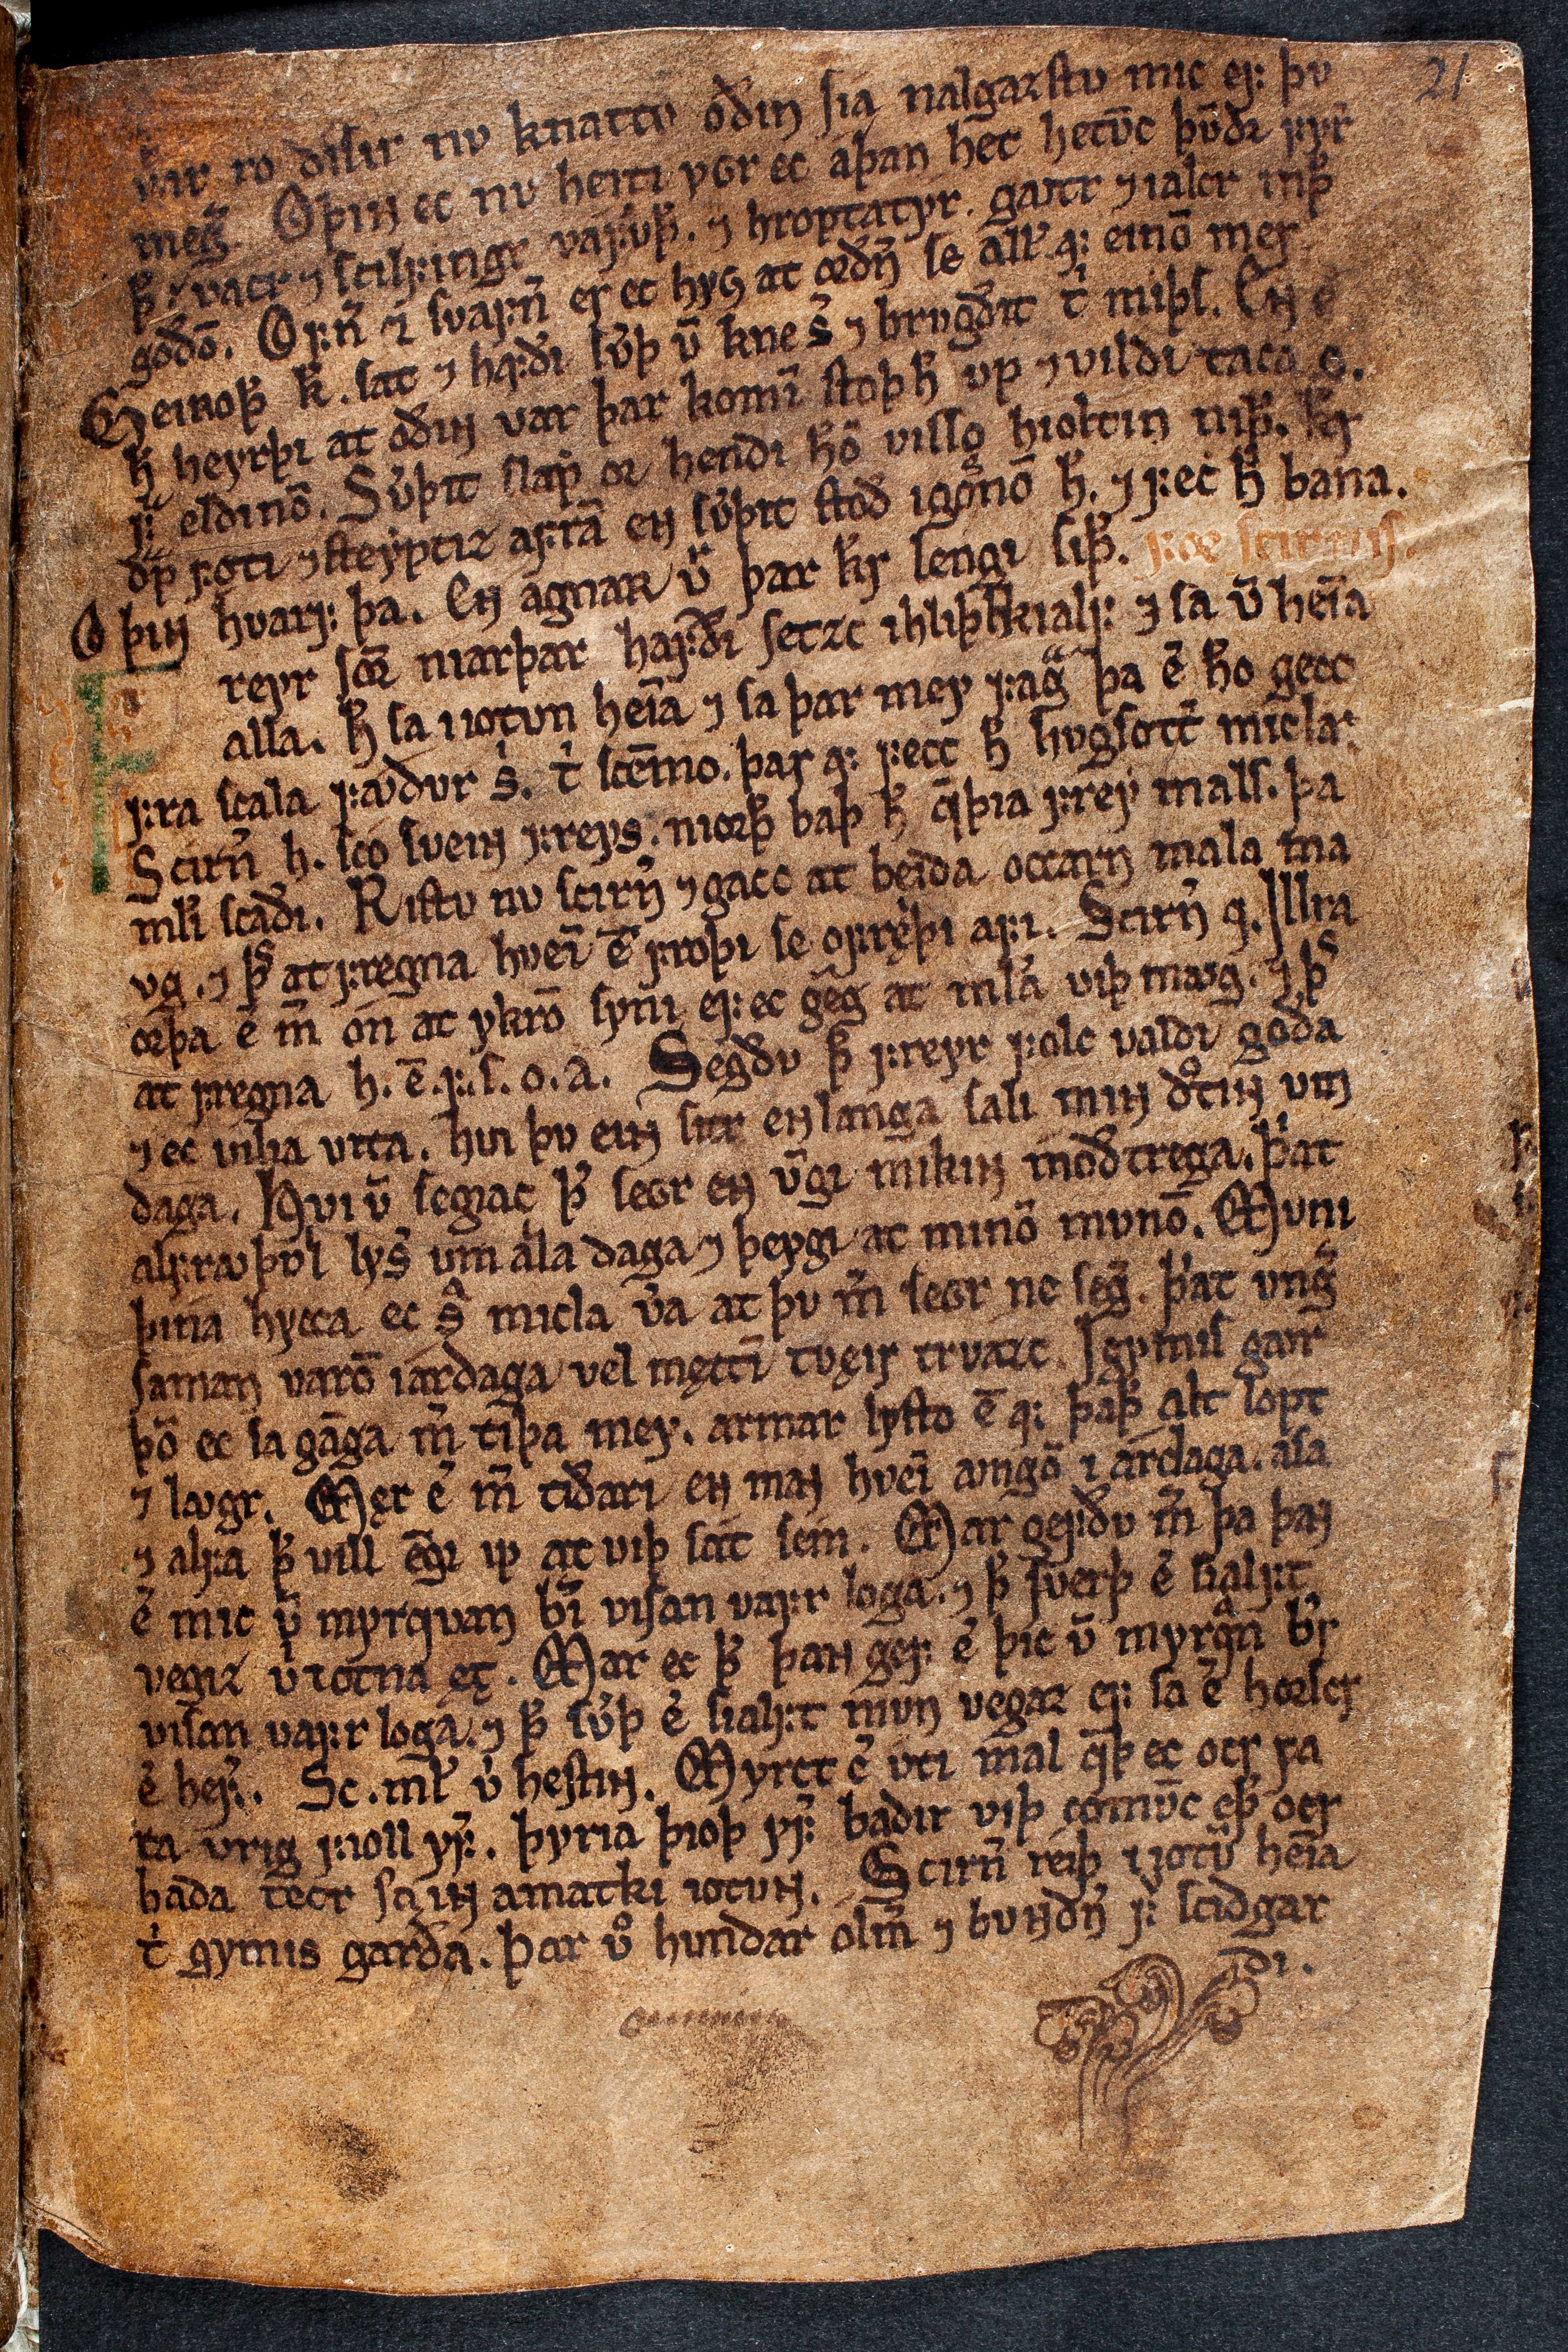 21
v͛ar ro disir nv knattv oðin sia nalgaztv mic ef þv
meg͛. Oþiɴ ec nv heiti ygr ec aþan het hetv̄c þv̄ðr fyr͛
þ͛. vacr ⁊ scilfingr vafvþ͛. ⁊ hroptatyr. gatr ⁊ ialcr mꝫ
goðō. Ofn͛ ⁊ svafn͛ er ec hyg at orðn͛ se all͛ af einō mer
Geiroþ͛ k͛. sat ⁊ hafði sv͛þ v̄ kne s͛ ⁊ brvgðit t͛ miþs. En e͛
h̄ heyrþi at oðiɴ var þar komī stoþ h̄ vp ⁊ vildi taca o.
f͛ eldinō. Sv͛þit slap or hendi hō visso hioltin niþ͛. kr͛
dp͛ foti ⁊ steyptiz afrā eɴ sv͛þit stoð igǫgnō h̄. ⁊ fec h̄ bana.
Oþiɴ hvarf þa. En agnaʀ v͛ þar kr͛ lengi siþ͛. for scirnis.
Freyr sōr niarþar hafði setzc ihliþscialf ⁊ sa v̄ heīa
alla. h̄ sa iiotvn heīa ⁊ sa þar mey fagᷓ þa e͛ ho gecc
fra scala fꜹdvr s͛. t͛ scēmo. þar af fecc h̄ hvgsott͛ micla͛.
Scirn͛ h. sco sveiɴ freys. niorþ͛ baþ h̄ qveþia frey mals. þa
mlͥ scaði. Ristv nv scirn͛ ⁊ gacc at beiða occarn mala ma
vg. ⁊ þˢ at fregna hveī ē froþi se ofreþi afi. Scirn͛ q. Illra
orþa e͛ m͛ ón at ykrō syni ef ec geng at mla viþ mꜹg. ⁊ þˢ
at fregna h. ē. f. s. o. a. Segðv þ͛ freyr folc valdi goða
⁊ ec vilia vita. hvi þv eiɴ sitr enlanga sali miɴ drottiɴ vm
daga. Hvi v̄ segiac þ͛ segr eɴ v̄gi mikiɴ moðtrega. þ͛at
alfrꜹþvl lys͛ vm alla daga ⁊ þeygi at minō mvnō. Mvni
þina hycca ec sᷓ micla v͛a at þv m͛ segr ne seg͛. þ͛at vng͛
saman varō iardaga vel mettī tveir trvazc. Igymis gꜹrð
þō ec sa gāga m͛ tiþa mey. armar lysto ē af þaþ͛ alt lopt
⁊ lꜹgr. Mer e͛ m͛ tiðari eɴ maɴ hveī ꜹngō i ardaga. asa
⁊ alfa þˢ vill ēgi ꝩ at viþ sat sem. Mar gefðv m͛ þa þaɴ
e͛ mic v̄ myrqvan b͛i visan vafr loga. ⁊ þˢ sverþ e͛ sialft
vegiz v͛ iotna ęt. Mar ec þ͛ þaɴ gef e͛ þic v̄ myrqᷓn b͛r
visan vafr loga. ⁊ þˢ sv͛þ e͛ sialft mvn vegaz ef sa e͛ horscr
e͛ hef͛. Sc. mlͥ v͛ hestiɴ. Myrct e͛ vti mal qveþ ec ocr fa
ra vrig fioll yf͛. þyria þioþ yf͛ baðir viþ comv̄c eþ͛ ocr
baða tecr sa iɴ amatki iotvɴ. Scirn͛ reiþ i iotv̄ heīa
t͛ gymis garða. þar v͛o hvndar olm͛ ⁊ bvndn͛ f͛ scidgar
di.